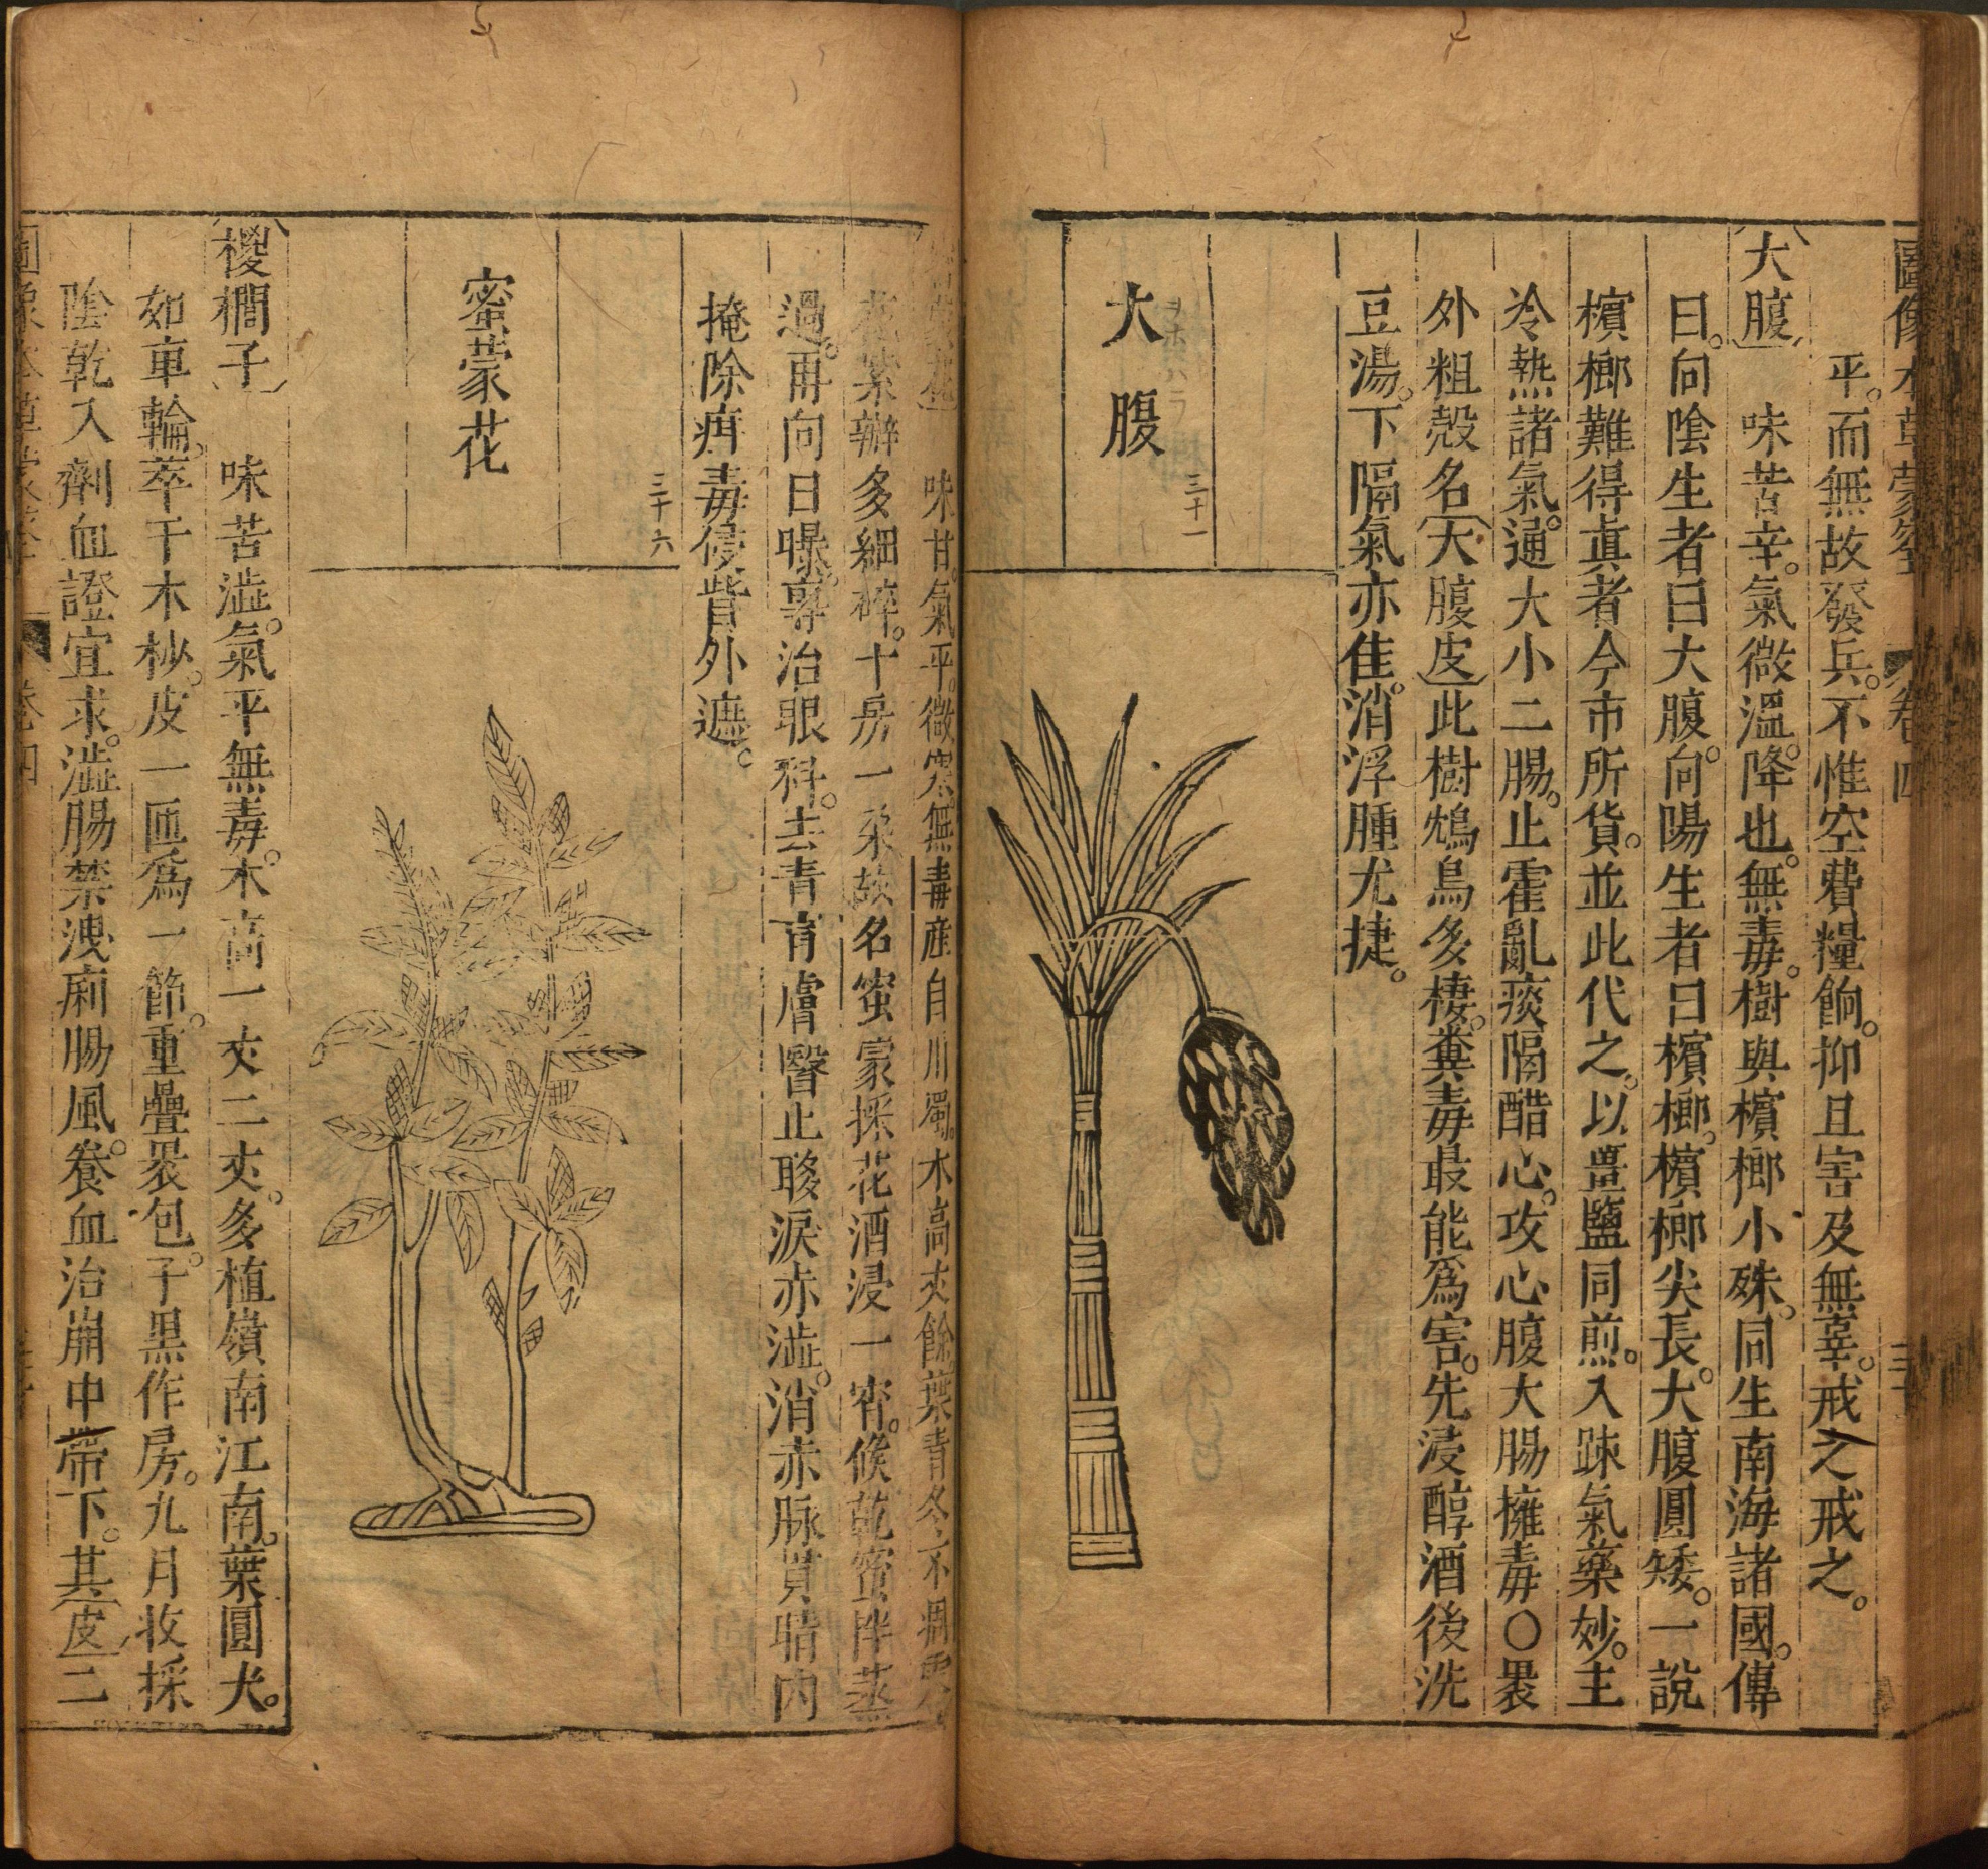 圖像本草蒙筌 卷四
平。而無故發兵。不惟空費糧餉。抑且害及無辜。戒之戒之。
大腹 味苦辛。氣微溫。降也。無毒。樹與檳榔小殊。同生南海諸國。傳
曰。向陰生者曰大腹。向陽生者曰檳榔。檳榔尖長。大腹圓矮。一說
檳榔難得真者今市所貨。並此代之。以薑鹽同煎。入疎氣藥妙。主
冷熱諸氣。通大小二腸。止霍亂痰隔醋心。攻心腹大腸擁毒○褁
外粗殼名大腹皮此樹鴆鳥多棲。糞毒最能爲害。先浸醇酒後洗
豆湯。下隔氣亦佳。消浮腫尤捷。
三十一
大腹
味甘。氣平。微寒。無毒產自川蜀。木高丈餘。葉青冬不凋
花紫瓣多細碎。十房一朶。故名蜜蒙採花酒浸一宿。候乾蜜拌蒸
過。再向日曝。專治眼科。去青盲膚瞖止眵淚赤澁。消赤脉貫睛内
掩除疳毒侵眥外遮。
三十六
密蒙花
椶櫚子 味苦澁。氣平無毒。木高一丈二丈。多植嶺南江南。葉圓大。
如車輪。萃于木杪。皮一匝爲一節。重疊褁包。子黑作房。九月收採
陰乾入劑血證宜求。澁腸禁洩痢腸風。養血治崩中帶下。其皮二